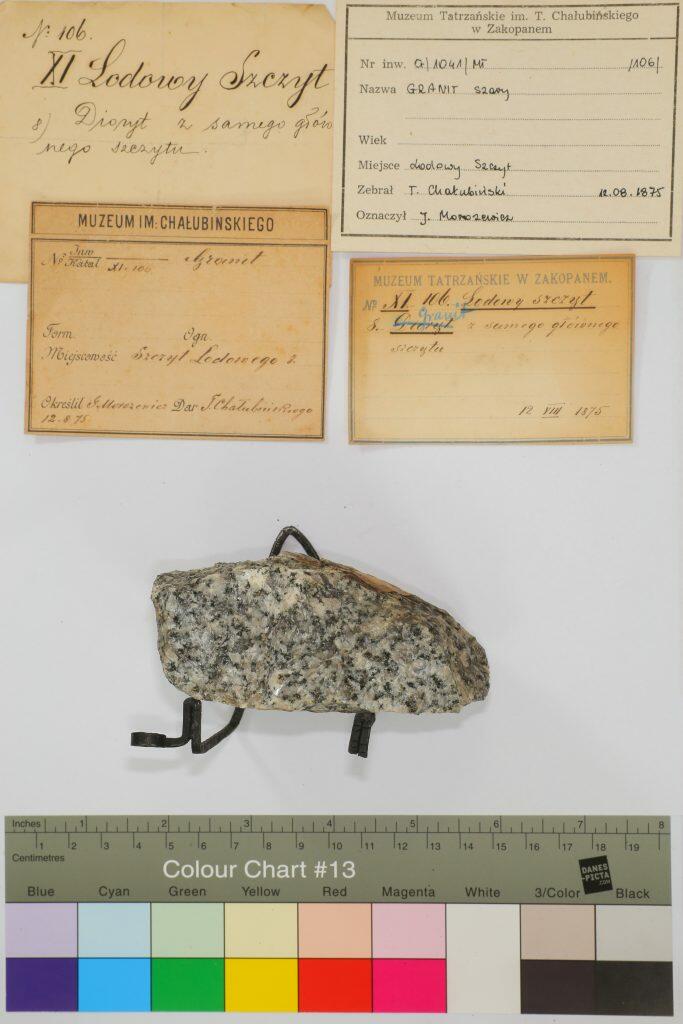 No. 106.
XI Lodowy Szczyt
8) Dioryt z samego głów
nego szczytu.
Muzeum Tatrzańskie im. T. Chałubińskiego
w Zakopanem
Nr inw. G/1041/MT /106/
Nazwa GRANIT szary
Wiek
Miejsce Lodowy Szczyt
Zebrał T. Chałubiński 12.08.1875
Oznaczył J. Morozewicz
MUZEUM IM. CHAŁUBINSKIEGO
No Inw Katal XI. 106 Granit
Form. Ogn.
Miejscowość Szczyt Lodowego
Określił J. Morozewicz Dar T. Chałubińskiego
12.8.75
MUZEUM TATRZAŃSKIE W ZAKOPANEM.
No XI 106. Lodowy szczyt
Granit
8. Dioryt z samego głównego
szczytu
12 VIII 1875
Inches 1 2 3 4 5 6 7 8
1 2 3 4 5 6 7 8 9 10 11 12 13 14 15 16 17 18 19
Centimetres
Colour Chart #13
DANES
-PICTA
.COM
Blue Cyan Green Yellow Red Magenta White 3/Color Black